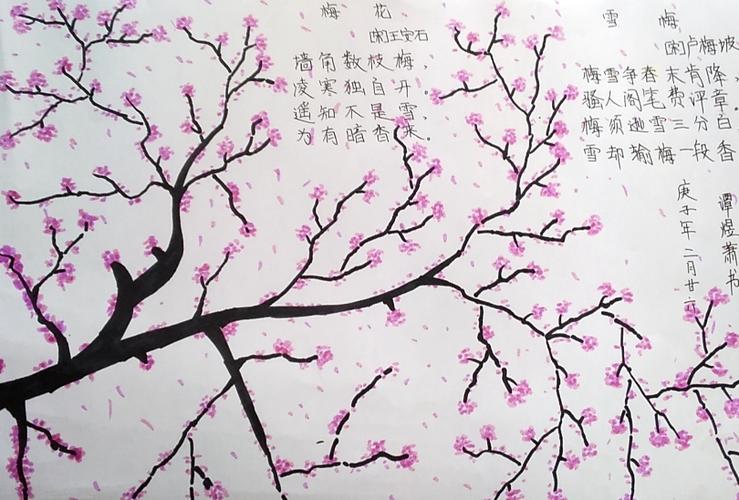 梅 花
[宋]王安石
墙角数枝梅，
凌寒独自开。
遥知不是雪，
为有暗香来。
雪 梅
[宋]卢梅坡
梅雪争春未肯降，
骚人阁笔费评章。
梅须逊雪三分白
雪却输梅一段香
庚子年二月廿六
谭煜萧书